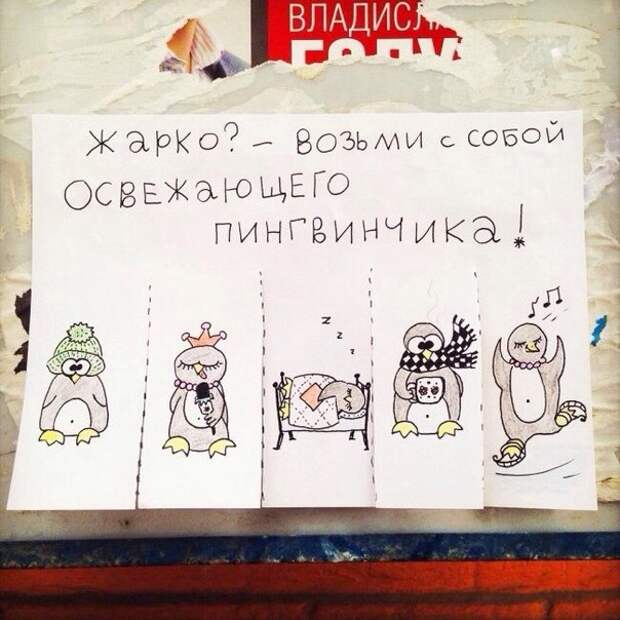 ВЛАДИСЛА
ГОДУ
Жарко? – возьми с собой
ОСВЕЖАЮЩЕГО
ПИНГВИНЧИКА!
z
z
z